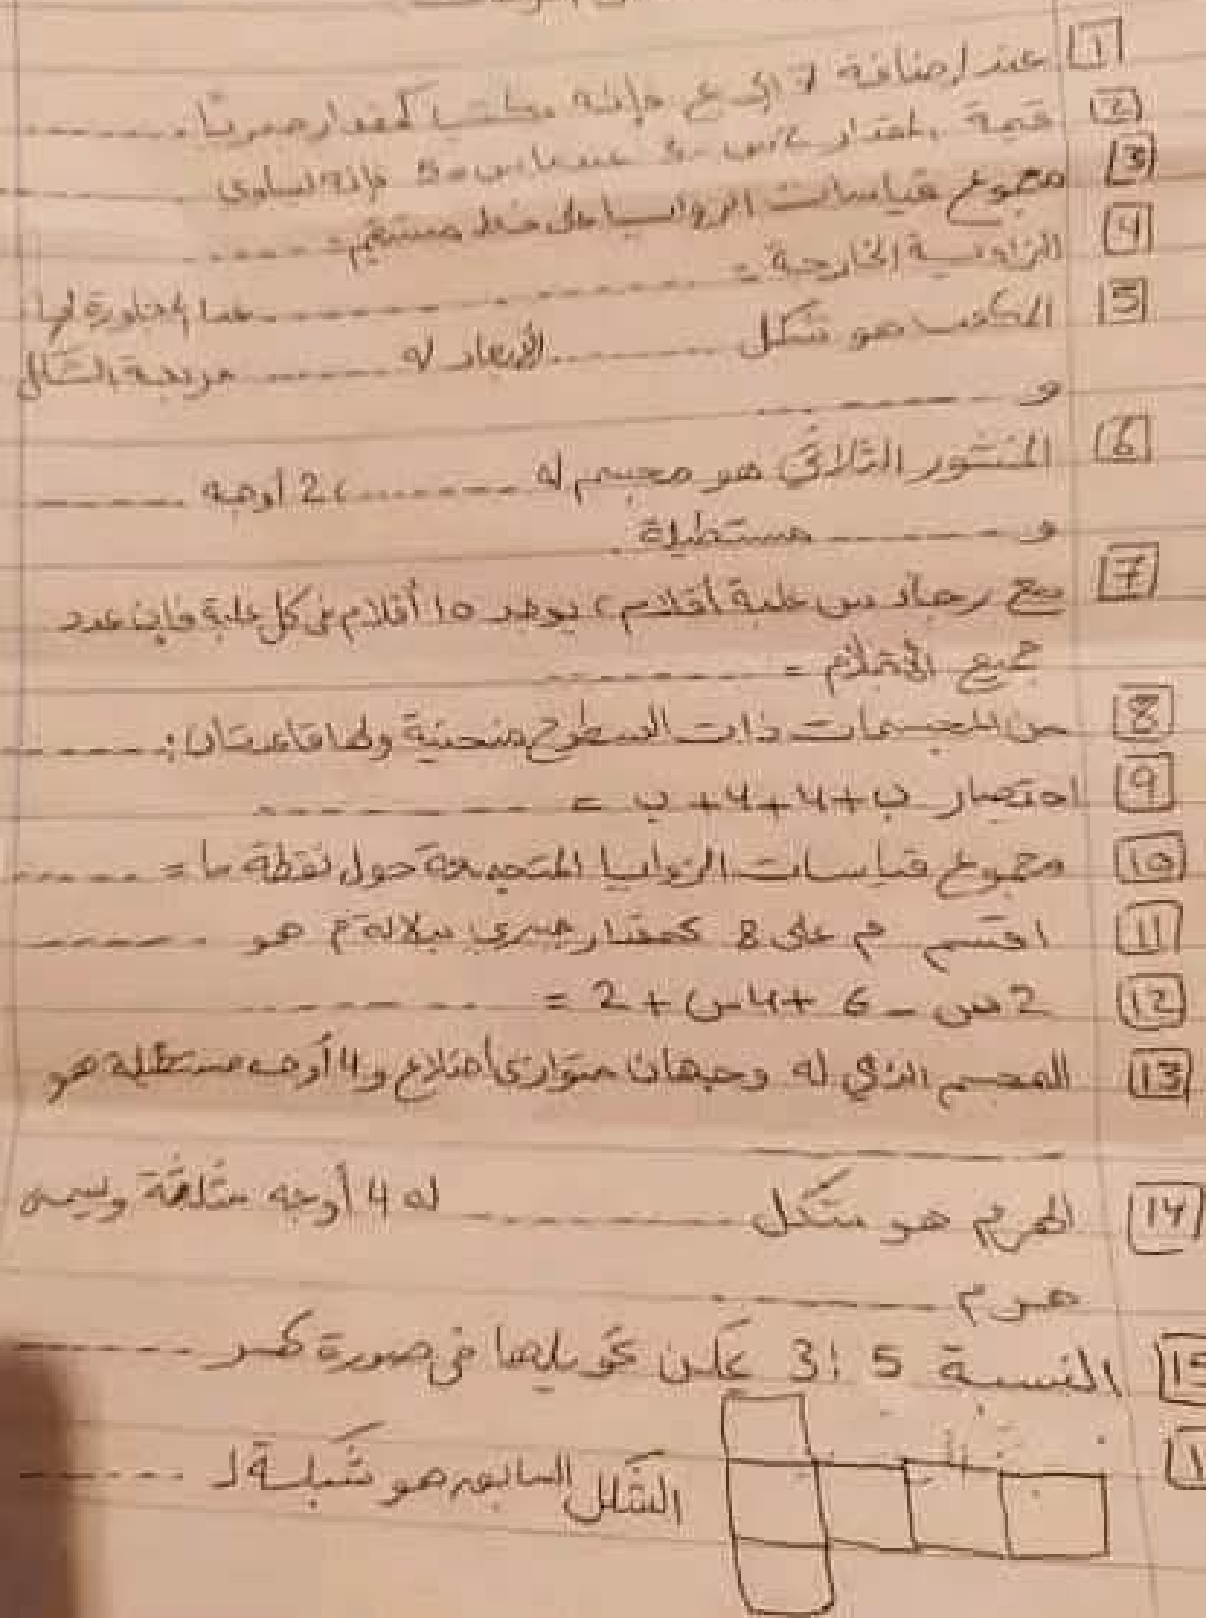 1 عند إضافة 7 إلى ع فإنه يكتب كمقدار جبريًا ........
2 قيمة المقدار س - 3 عندما س = 5 فإنه يساوي ........
3 مجموع قياسات الزوايا على خط مستقيم = ........
4 الزاوية الخارجة = ........ عدا المجاورة لها
5 المكعب هو شكل ........ الأبعاد له ........ مربعة الشكل
و ........
6 المنشور الثلاثي هو مجسم له ........، 2 أوجه ........
و ........ مستطيلة.
7 مع رجاء س علبة أقلام، يوجد 10 أقلام في كل علبة فإن عدد
جميع الأقلام = ........
8 من المجسمات ذات السطوح منحنية ولها قاعدتان: ........
9 اختصار ب + 4 + 4 + ب = ........
10 مجموع قياسات الزوايا المتجمعة حول نقطة ما = ........
11 اقسم م على 8 كمقدار جبري بدلالة م هو ........
12 2س - 6 + 4س + 2 = ........
13 المجسم الذي له وجهان متوازي أضلاع و 4 أوجه مستطيلة هو
........
14 الهرم هو شكل ........ له 4 أوجه مثلثة ويسمى
هرم ........
15 النسبة 5 : 3 يمكن تحويلها في صورة كسر ........
1 الشكل السابق هو شبكة لـ ........